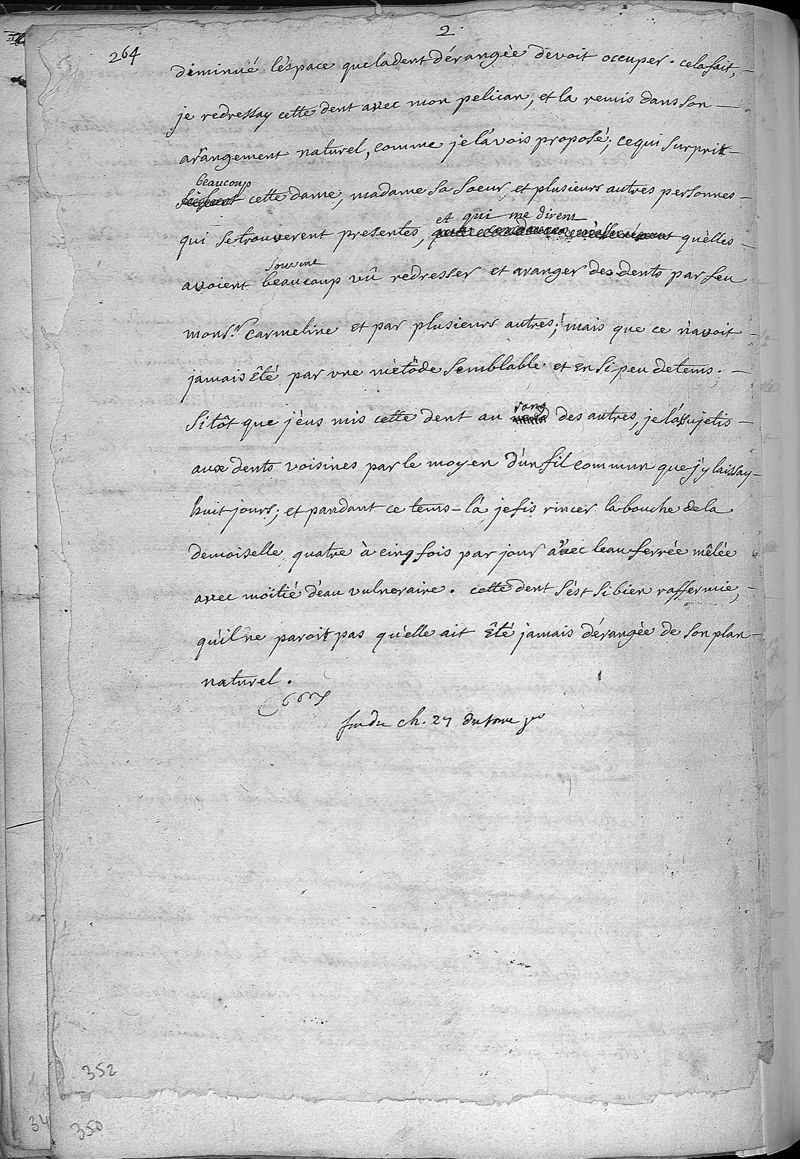 2
264
diminué l'éspace que la dent dérangée devoit occuper. cela fait,
je redressay cette dent avec mon pelican, et la remis dans son
arangement naturel, comme je l'avois proposé; ce qui surprit
beaucoup
cette dame, madame sa soeur, et plusieurs autres personnes
et qui me dirent
qui se trouverent presentes, qu'elles
souvent
avoient beaucoup vû redresser et aranger des dents par feu
mons.r Carmeline et par plusieurs autres; mais que ce n'avoit
jamais êté par une métôde semblable et en si peu de tems.
rang
Sitôt que j'eus mis cette dent au des autres, je l'assujetis
aux dents voisines par le moyen d'un fil commun que j'y laissay
huit jours; et pandant ce tems-là je fis rincer la bouche de la
demoiselle quatre à cinq fois par jour avec l'eau ferrée mêlée
avec moitié d'eau vulneraire. cette dent s'est si bien raffermie,
qu'il ne paroit pas qu'elle ait êté jamais dérangée de son plan
naturel.
fin du ch. 27 du tome 1er
352
350
34